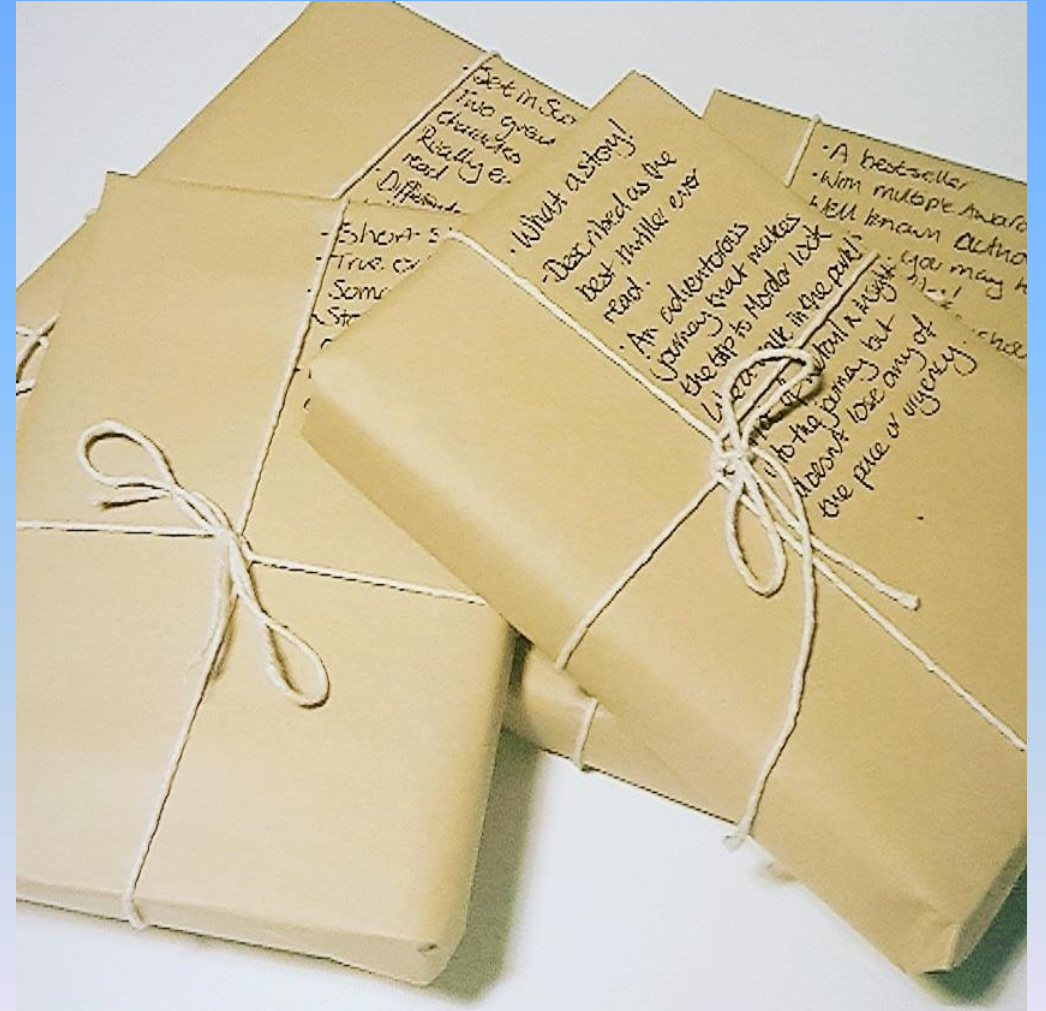 - Set in
Two great
characters
Really
read
- Short
- True
- What a story!
- Described as the
best thriller ever
read.
- An adventorous
journey that makes
the trip to Mordor look
like a walk in the park!
detail & insight
into the journey but
doesn't lose any of
the pace or urgency
- A bestseller
- Won multiple Award
Well known autho
you may